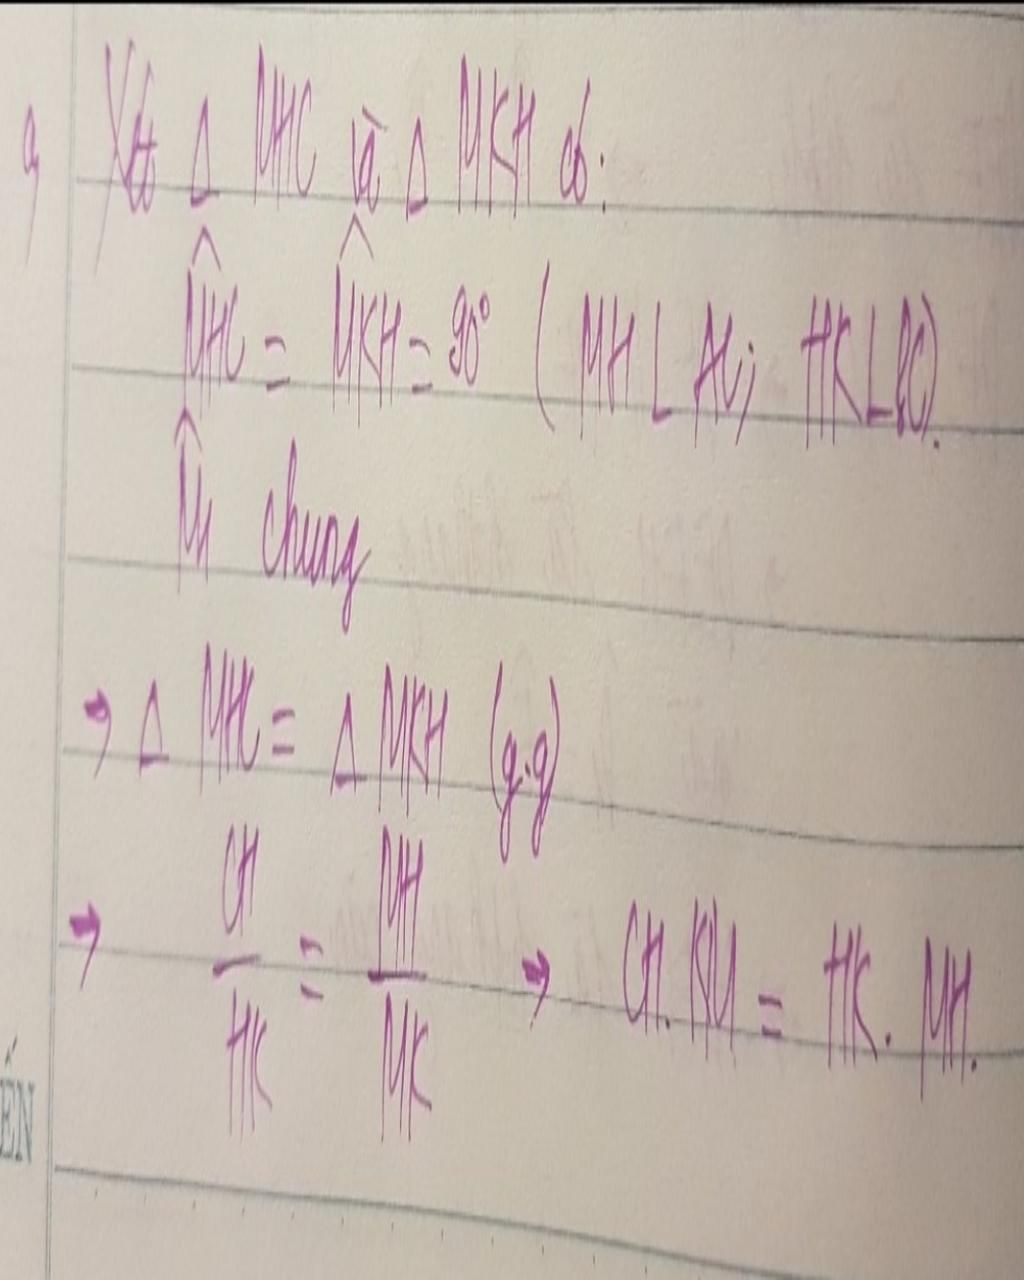 a, Xét Δ MHC và Δ MKH có:
\widehat{MHC} = \widehat{MKH} = 90° ( MH ⊥ AC; HK ⊥ BC).
\widehat{M} chung
→ Δ MHC = Δ MKH (g.g)
→ CH/HK = MH/MK → CH. KM = HK. MH.
ẾN